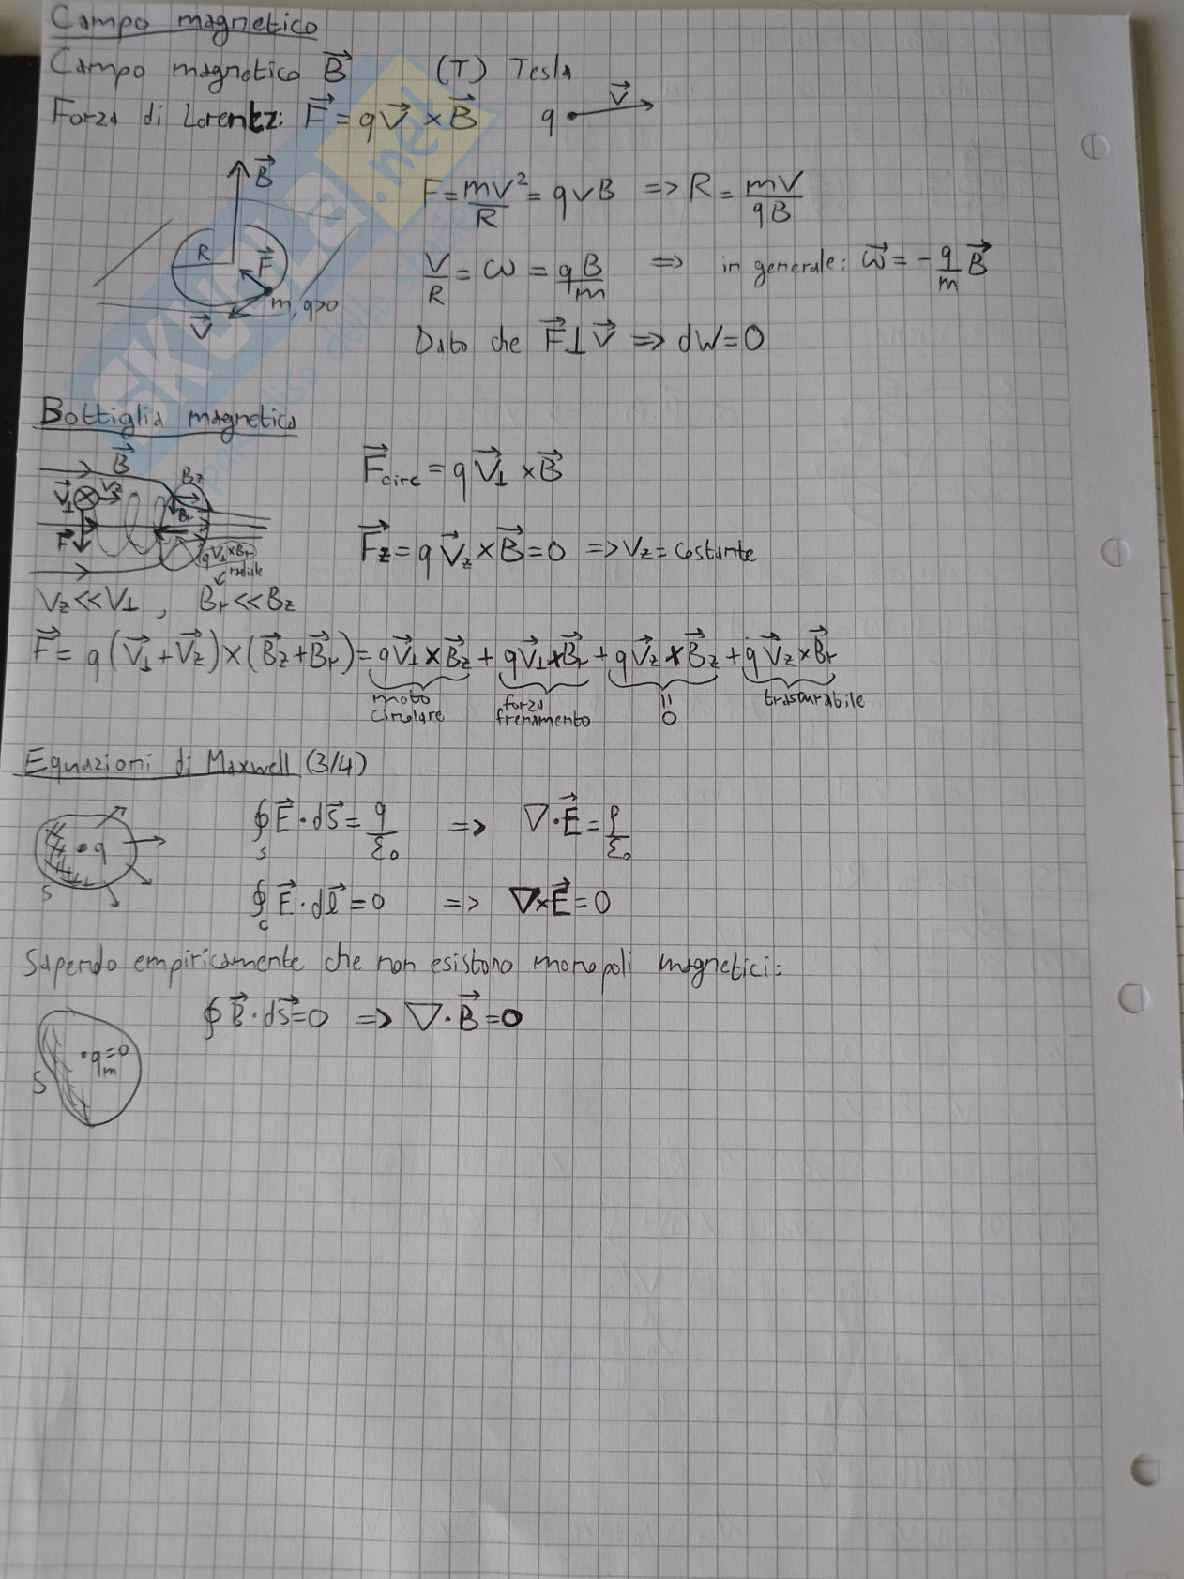 Campo magnetico
Campo magnetico B⃗ (T) Tesla
Forza di Lorentz: F⃗ = qv⃗ × B⃗ q v⃗
B⃗
R F⃗
m, q>0
v⃗
F = mv²/R = qvB => R = mv/qB
v/R = ω = qB/m => in generale: ω⃗ = -q/m B⃗
Dato che F⃗ ⊥ v⃗ => dW = 0
Bottiglia magnetica
B⃗ Bz
v⃗⊥ vz Br
F⃗
qv⊥×Br
radiale
F⃗circ = q v⃗⊥ × B⃗
F⃗z = q v⃗z × B⃗ = 0 => vz = costante
vz << v⊥ , Br << Bz
F⃗ = q (v⃗⊥ + v⃗z) × (B⃗z + B⃗r) = qv⃗⊥ × B⃗z + qv⃗⊥ × B⃗r + qv⃗z × B⃗z + qv⃗z × B⃗r
moto circolare forza frenamento = 0 trascurabile
Equazioni di Maxwell (3/4)
q
S
∮S E⃗ · dS⃗ = q/ε₀ => ∇ · E⃗ = ρ/ε₀
∮c E⃗ · dl⃗ = 0 => ∇ × E⃗ = 0
Sapendo empiricamente che non esistono monopoli magnetici:
∮ B⃗ · dS⃗ = 0 => ∇ · B⃗ = 0
qm = 0
S
SKUOLA.net